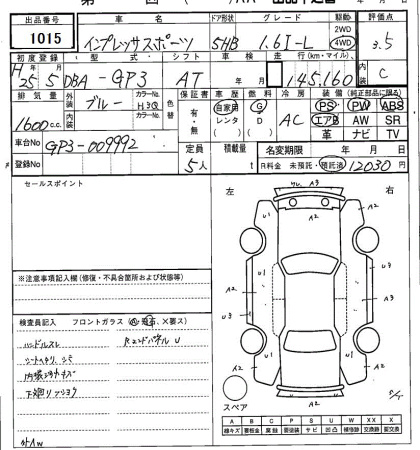 出品番号 車名 ドア形状 グレード 駆動 評価点
1015 インプレッサスポーツ 5HB 1.6I-L 2WD 4WD 3.5
初度登録 型式 シフト 車検 走行(km・マイル) 内装
H25年5月 DBA-GP3 AT 年 月 145,160 C
排気量 外装 カラーNo. 色替 保証書 車歴 燃料 冷房 装備(純正部品に限る)
1600c.c. ブルー H3Q 有・無 自家用 レンタ G D AC PS PW ABS
カラーNo. エアB AW SR
革 ナビ TV
車台No. GP3-009992 定員 積載量 名変期限 年 月 日
登録No. 5人 t R料金 未預託・預託済 12030円
セールスポイント
左 右
U1 A3
A2
U1 A2
U1 A2
A2 U1
U1 A2
A2
※注意事項記入欄(修復・不具合箇所および状態等)
検査員記入 フロントガラス(A、飛石、X要ス)
ハンドルスレ Rエンドパネル U
シートヘタリ、シミ
内装ヨゴレキズ
下廻リサビ
外AW
スペア
A B C P S U W XX X
線キズ 要板金 腐蝕 要塗装 サビ 凹凸 補修跡 交換済 要交換